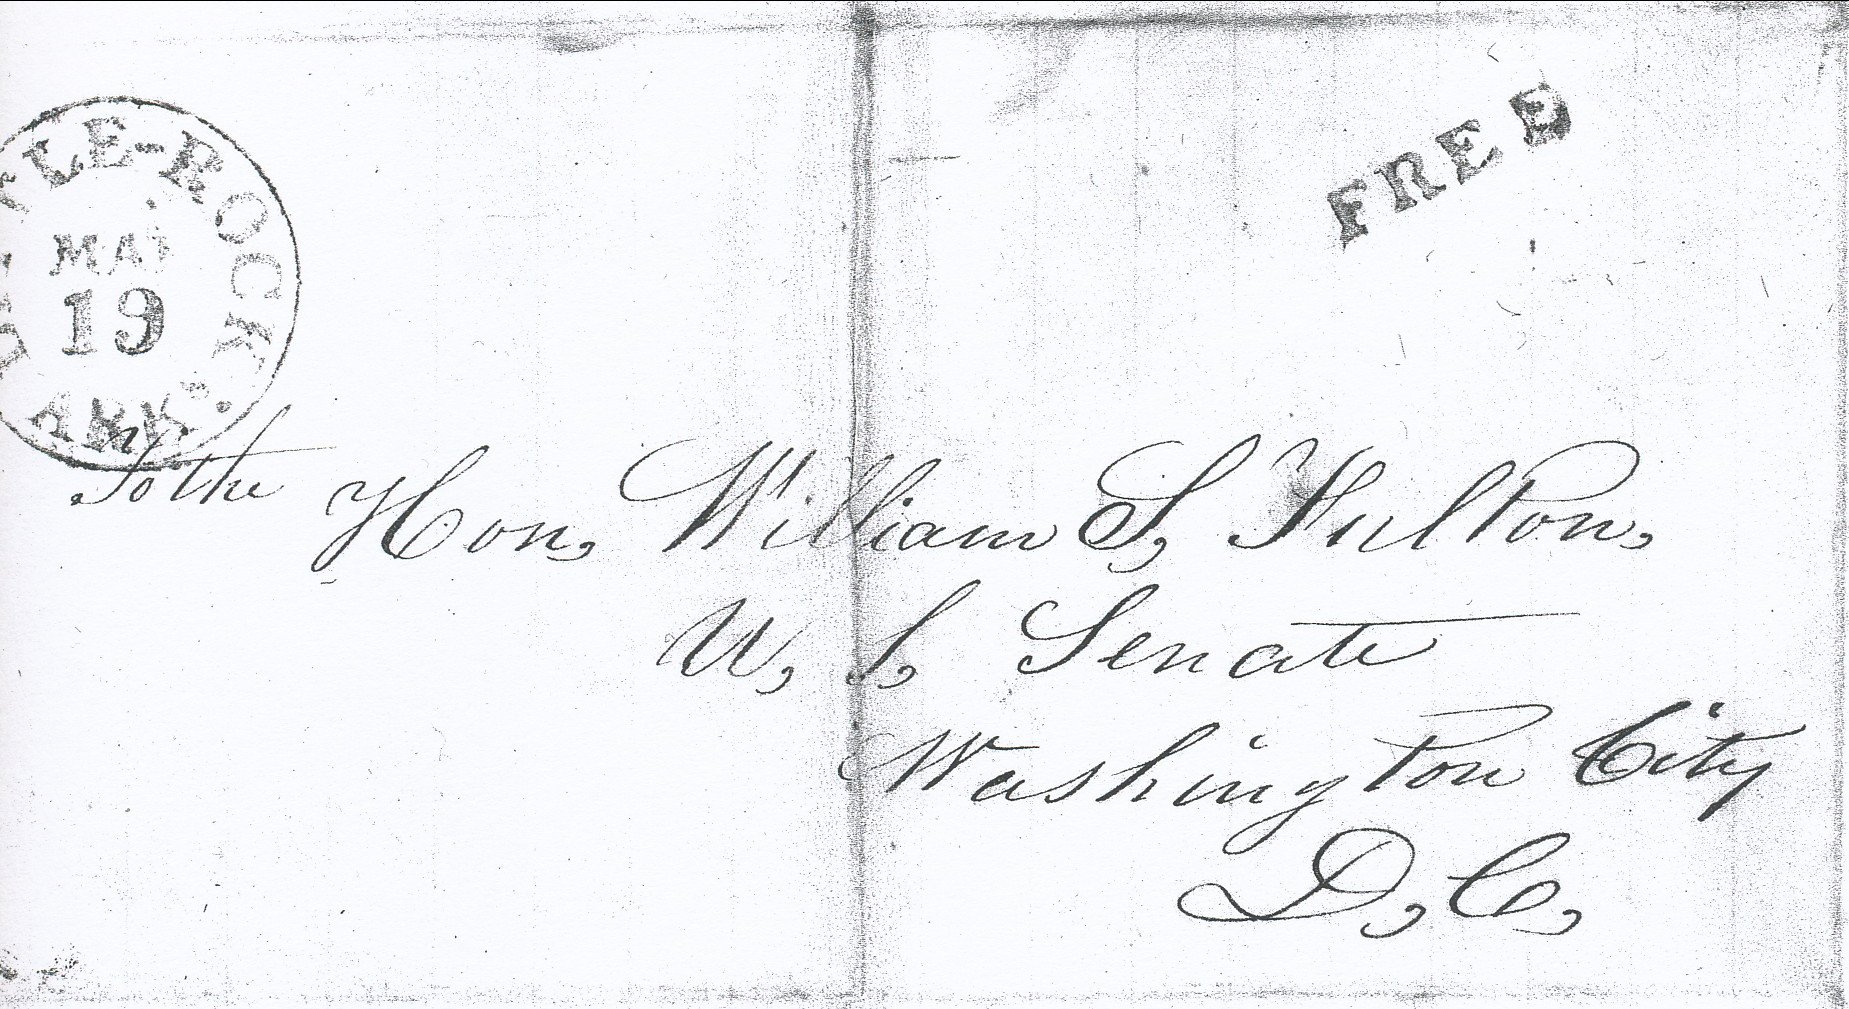 TLE-ROCK
MAY
19
ARK.
FREE
To the Hon, William S, Fulton,
U, S, Senate
Washington City
D, C,